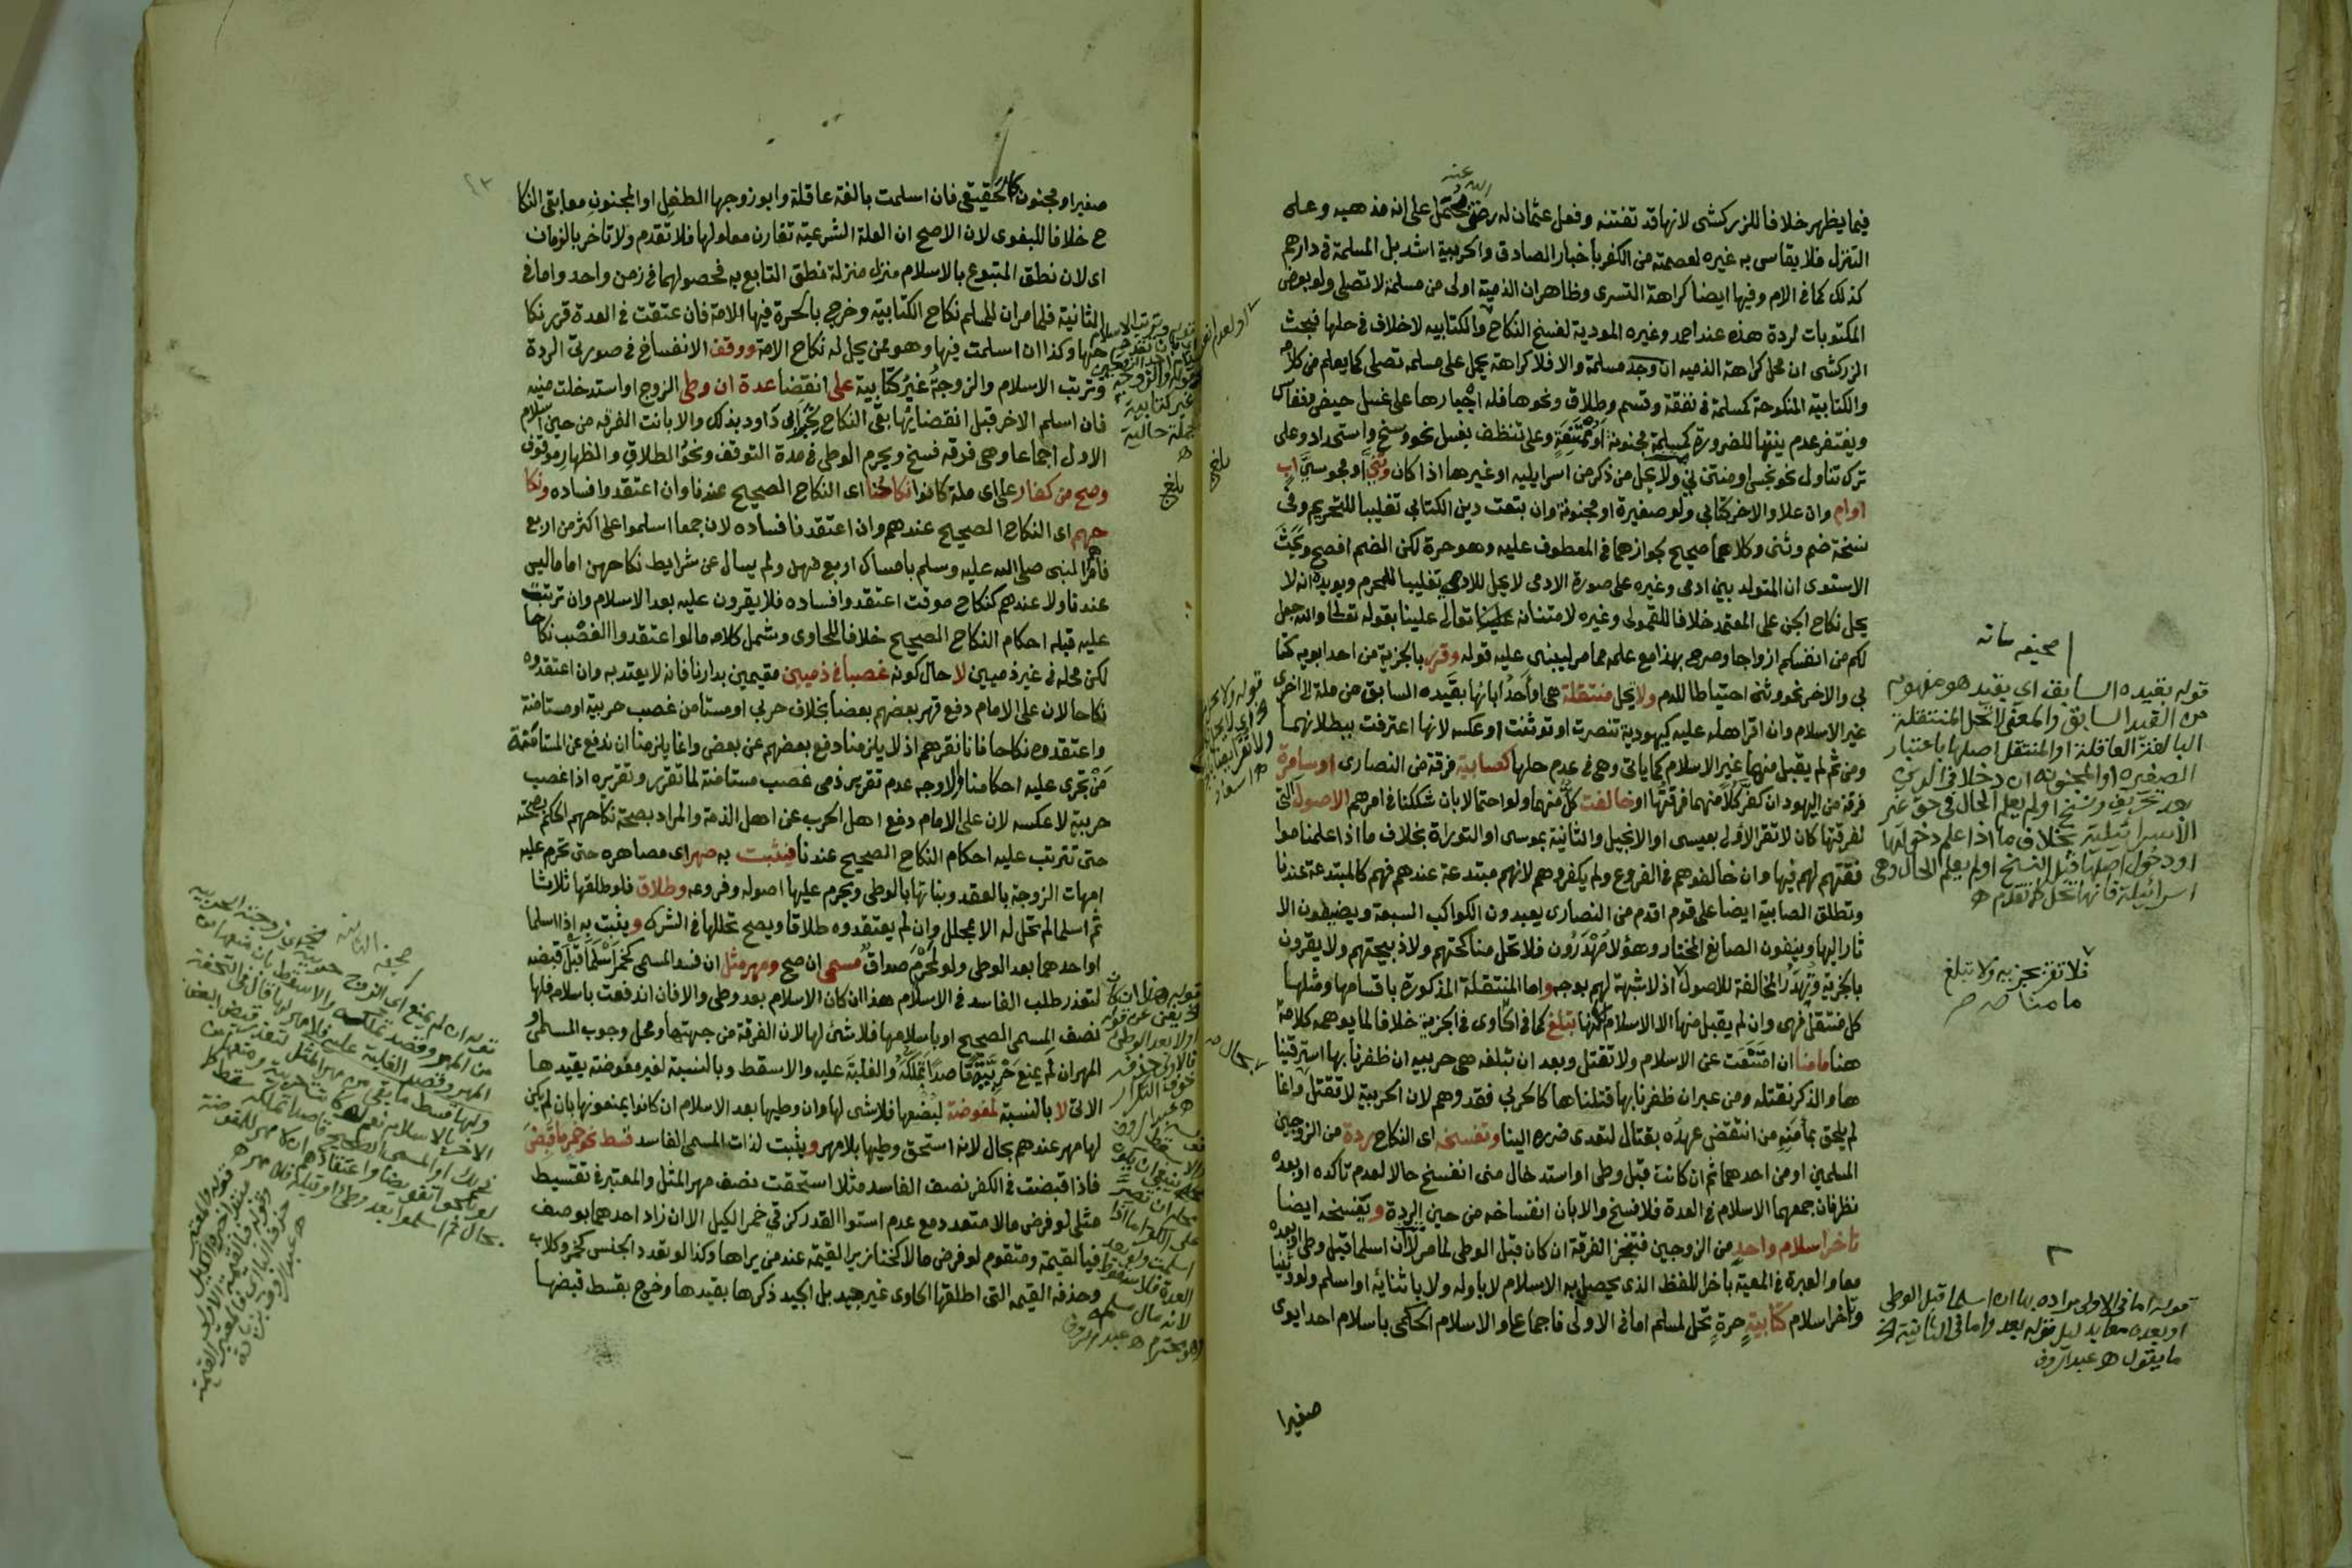 فيما يظهر خلافا للزركشى لانها قد تفتنه وفعل عثمان له رضى الله عنه محتمل على انه مذهبه وعلى
التنزل فلا يقاس به غيره لعصمته من الكفر بأخبار الصادق والحربية اشد بل المسلمة فى دارهم
كذلك كما فى الام وفيها ايضا كراهة التسرى وظاهر ان الذمية اولى من مسلمة لا تصلى ولو بعض
المكتوبات لردة هذه عند احمد وغيره المودية لفسخ النكاح والكتابيه لا خلاف فى حلها فبحث
الزركشى ان محل كراهة الذميه ان وجد مسلمة والا فلا كراهة يحمل على مسلمه تصلى كما يعلم من كلامه
والكتابية المنكوحة كمسلمة فى نفقة وقسم وطلاق ونحوها فله اجبارها على غسل حيض ونفاس
ويغتفر عدم نيتها للضرورة كمسلمة مجنونة او ممتنعة وعلى تنظف بغسل نحو وسخ واستحداد وعلى
ترك تناول نحو نجس او منتن نى ولا يحل من ذكر من اسرايليه او غيرها اذا كان وثنى او مجوسى اب
او ام وان علا والاخر كتابى ولو صغيرة او مجنونة وان تبعت دين الكتابى تغليبا للتحريم وفى
نسخة ضم وثنى وكلاهما صحيح بجوازهما فى المعطوف عليه وهو حرة لكن الضم افصح وبحث
الاسنوى ان المتولد بين ادمى وغيره على صورة الادمى لا يحل للادمى تغليبا للمحرم ويويده انه لا
يحل نكاح الجن على المعتمد خلافا للقمولى وغيره لامتنانه علينا تعالى علينا بقوله تعالى والله جعل
لكم من انفسكم ازواجا وصرح بهذا مع علمه مما مر ليبنى عليه قوله وقرر بالجزية من احد ابويه كتا
بى والاخر نحو وثنى احتياطا للدم ولا تحل منتقلة هى او احد ابائها بقيده السابق من ملة الى اخرى
غير الاسلام وان اقر اهله عليه كيهودية تنصرت او توثنت او عكسه لانها اعترفت ببطلانهما
ومن ثم لم يقبل منهما غير الاسلام كما ياتى وهى فى عدم حلها كصابية فرقة من النصارى او سامرة
فرقة من اليهود ان كفر كلا منهما فرقتها او خالفت كل منهما ولو احتمالا بان شككنا فى امرهم الاصول التى
لفرقتها كان لا تقر الاولى بعيسى او الانجيل والثانية بموسى او التوراة بخلاف ما اذا علمنا موا
فقتهم لهم فيها وان خالفوهم فى الفروع ولم يكفروهم لانهم مبتدعة عندهم فهم كالمبتدعة عندنا
وتطلق الصابية ايضا على قوم اقدم من النصارى يعبدون الكواكب السبعة ويضيفون الا
ثار اليها وينفون الصانع المختار وهؤلا مهدرون فلا تحل مناكحتهم ولا ذبيحتهم ولا يقرون
بالجزية وتهدر المخالفة للاصول اذ لا شبهة لهم بوجه واما المنتقلة المذكورة باقسامها ومثلها
كل منتقل فهى وان لم يقبل منها الا الاسلام لكنها تبلغ كما فى الحاوى فى الجزية خلافا لما يوهمه كلامه
هنا مامنا ان امتنعت عن الاسلام ولا تقتل وبعد ان تبلغه هى حربيه ان ظفرنا بها استرقينا
ها والذكر نقتله ومن عبر ان ظفرنا بها قتلناها كالحربى فقد وهم لان الحربية لا تقتل وانما
لم يلحق بمأمنه من انتقض عهده بقتال لتعدى ضرره الينا وتفسخه اى النكاح ردة من الزوجين
المسلمين او من احدهما ثم ان كانت قبل وطى او استدخال منى انفسخ حالا لعدم تاكده او بعده
نظر فان جمعهما الاسلام فى العدة فلا فسخ والا بان انفساخه من حين الردة ويفسخه ايضا
تاخر اسلام واحد من الزوجين فتنجز الفرقة ان كان قبل الوطى لما مر لا ان اسلما قبل وطى او بعده
معا والعبرة فى المعية بآخر اللفظ الذى يحصل به الاسلام لا باوله ولا باثنائه او اسلم ولو تبعا
وتأخر اسلام كتابية حرة تحل لمسلم اما فى الاولى فاجماعا والاسلام الحكمى باسلام احد ابوى
صغيرا
صحيفه سانه
قوله بقيده السابق اى بقيد هو مفهوم
من القيد السابق والمعنى لا تحل المنتقلة
البالغة العاقلة او المنتقل اصلها باعتبار
الصغيره او المجنونة ان دخلا فى الدين
بعد تحريف ونسخ او لم يعلم الحال فى حق غير
الاسرائيلية بخلاف ما اذا علم دخولها
او دخول اصلها قبل النسخ او لم يعلم الحال وهى
اسرائيلة فانها تحل كما تقدم ه
فلا تقر بجزيه ولا تبلغ
مامنا صح
قوله اما فى الاولى مراده بها ان اسلما قبل الوطى
او بعده معا بدليل قوله بعد واما فى الثانية الخ
ما يقول ه عبدالروف
صغيرا او مجنون كالحقيقى فان اسلمت بالغة عاقلة وابو زوجها الطفل او المجنون معا بقى النكا
ح خلافا للبغوى لان الاصح ان العلة الشرعية تقارن معلولها فلا تقدم ولا تاخر بالزمان
اى لان نطق المتبوع بالاسلام منزل منزلة نطق التابع به فحصولهما فى زمن واحد واما فى
الثانية فلما مر ان للمسلم نكاح الكتابية وخرج بالحرة فيها الامة فان عتقت فى العدة قرر نكا
حها وكذا ان اسلمت فيها وهو ممن يحل له نكاح الامة ووقف الانفساخ فى صورتى الردة
وترتب الاسلام والزوجة غير كتابية على انقضا عدة ان وطى الزوج او استدخلت منيه
فان اسلم الاخر قبل انقضائها بقى النكاح لخبر ابى داود بذلك والا بانت الفرقه من حين اسلام
الاول اجماعا وهى فرقه فسخ ويحرم الوطى فى مدة التوقف ونحو الطلاق والظهار موقوف
وصح من كفار على اى ملة كانوا نكاحنا اى النكاح الصحيح عندنا وان اعتقدوا فساده ونكا
حهم اى النكاح الصحيح عندهم وان اعتقدنا فساده لان جمعا اسلموا على اكثر من اربع
فامرهم النبى صلى الله عليه وسلم بامساك اربع فهن ولم يسال عن شرايط نكاحهن اما ما ليس
عندنا ولا عندهم كنكاح موقت اعتقدوا فساده فلا يقرون عليه بعد الاسلام وان ترتبت
عليه قبله احكام النكاح الصحيح خلافا للحاوى وشمل كلامه ما لو اعتقدوا الغصب نكاحا
لكن محله فى غير ذميين لا حال كونه غصبا فى ذميين مقيمين بدارنا فانه لا يعتد به وان اعتقدوه
نكاحا لان على الامام دفع قهر بعضهم بعضا بخلاف حربى او مستامن غصب حربية او مستامنة
واعتقدوه نكاحا فانا نقرهم اذ لا يلزمنا دفع بعضهم عن بعض وانما يلزمنا ان ندفع عن المستامنة
من تجرى عليه احكامنا والاوجه عدم تقرير ذمى غصب مستامنة لما تقرر وتقريره اذا غصب
حربية لا عكسه لان على الامام دفع اهل الحرب عن اهل الذمة والمراد بصحة نكاحهم الحكم بصحته
حتى تترتب عليه احكام النكاح الصحيح عندنا فيثبت به صهر اى مصاهره حتى تحرم عليه
امهات الزوجة بالعقد وبناتها بالوطى ويحرم عليها اصوله وفروعه وطلاق فلو طلقها ثلاثا
ثم اسلما لم تحل له الا بمحلل وان لم يعتقدوه طلاقا ويصح تحللها فى الشرك ويثبت به اذا اسلما
او احدهما بعد الوطى ولو لمحرم صداق مسمى ان صح ومهر مثل ان فسد المسمى كخمر اسلما قبل قبضه
لتعذر طلب الفاسد فى الاسلام هذا ان كان الاسلام بعد وطى والا فان اندفعت باسلامه فلها
نصف المسمى الصحيح او باسلامها فلا شى لها لان الفرقة من جهتها ومحل وجوب المسمى او
المهر ان لم يمنع حربية قاصدا تملكه والغلبة عليه والا سقط وبالنسبة لغير مفوضة بقيدها
الاتى لا بالنسبة لمفوضة لبضعها فلا شى لها وان وطيها بعد الاسلام ان كانوا يمنعونها بان لم يكن
لها مهر عندهم بحال لانه استحق وطيها بلا مهر ويثبت لذات المسمى الفاسد قسط نحو خمر ما قبض
فاذا قبضت فى الكفر نصف الفاسد مثلا استحقت نصف مهر المثل والمعتبر فى تقسيط
مثلى لو فرض مالا متعدد مع عدم استوا القدر كزقى خمر الكيل الا ان زاد احدهما بوصف
فبالقيمة ومتقوم لو فرض مالا كخنازير القيمه عند من يراها وكذا لو تعدد الجنس كخمر وكلاب
وحذفه القيمه التى اطلقها الحاوى غير جيد بل الجيد ذكرها بقيدها وخرج بقسط قبضها
بلغ
غير كتابية
جملة حالية